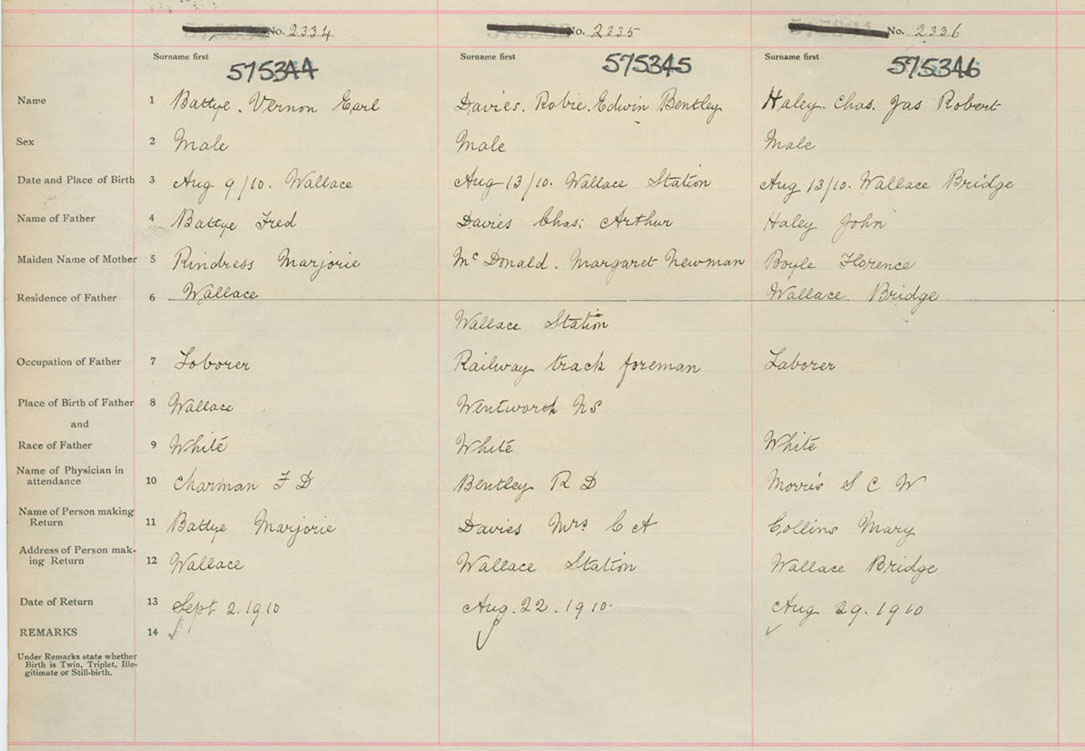 No. 2334 No. 2335 No. 2336
Surname first Surname first Surname first
575344 575345 575346
Name 1 Battye. Vernon Earl Davies. Robie. Edwin Bentley Haley. Chas. Jas Robert
Sex 2 Male Male Male
Date and Place of Birth 3 Aug 9/10. Wallace Aug 13/10. Wallace Station Aug 13/10. Wallace Bridge
Name of Father 4 Battye Fred Davies Chas: Arthur Haley John
Maiden Name of Mother 5 Rindress Marjorie McDonald. Margaret Newman Boyle Florence
Residence of Father 6 Wallace Wallace Bridge
Wallace Station
Occupation of Father 7 Loborer Railway track foreman Laborer
Place of Birth of Father 8 Wallace Wentworth NS
and
Race of Father 9 White White White
Name of Physician in
attendance 10 Charman F D Bentley R D Morris S C W
Name of Person making
Return 11 Battye Marjorie Davies Mrs C A Collins Mary
Address of Person mak-
ing Return 12 Wallace Wallace Station Wallace Bridge
Date of Return 13 Sept 2. 1910 Aug. 22. 1910. Aug 29. 1910
REMARKS 14
Under Remarks state whether
Birth is Twin, Triplet, Ille-
gitimate or Still-birth.